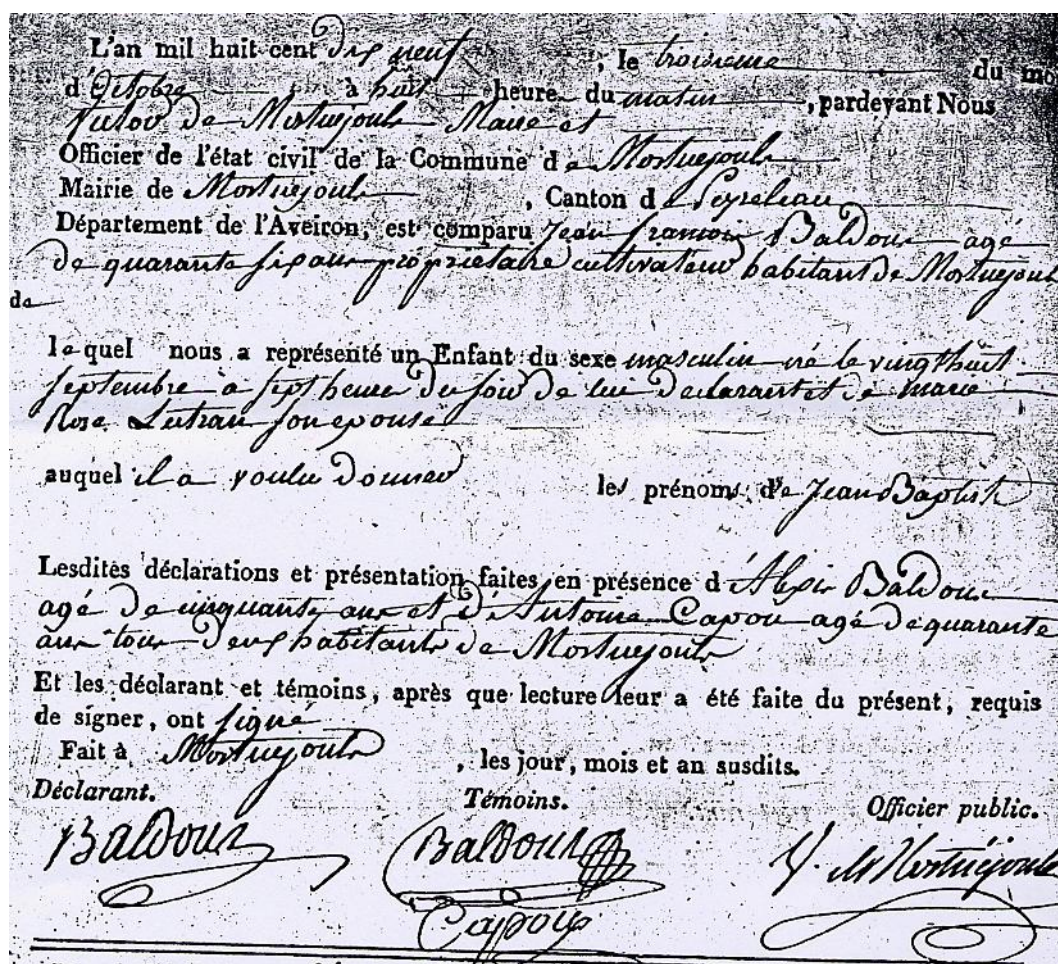 L'an mil huit cent dix neuf, le troisieme du mo
d'Octobre à huit heure du matin, pardevant Nous
Victor de Mostuejouls Maire et
Officier de l'état civil de la Commune de Mostuejouls
Mairie de Mostuejouls, Canton de Peyreleau
Département de l'Aveiron, est comparu Jean francois Baldous agé
de quarante six ans propriétaire cultivateur habitant de Mostuejouls
de
lequel nous a représenté un Enfant du sexe masculin né le vingt huit
septembre à sept heure du soir de lui declarant et de marie
Rose son epouse
auquel il a voulu donner les prénoms de Jean Baptiste
Lesdites déclarations et présentation faites en présence d'Alexis Baldous
agé de cinquante ans et d'Antoine Capou agé de quarante
ans tous deux habitants de Mostuejouls
Et les déclarant et témoins, après que lecture leur a été faite du présent, requis
de signer, ont signé
Fait à Mostuejouls, les jour, mois et an susdits.
Déclarant. Témoins. Officier public.
Baldous Baldous V. de Mostuéjouls
Capous